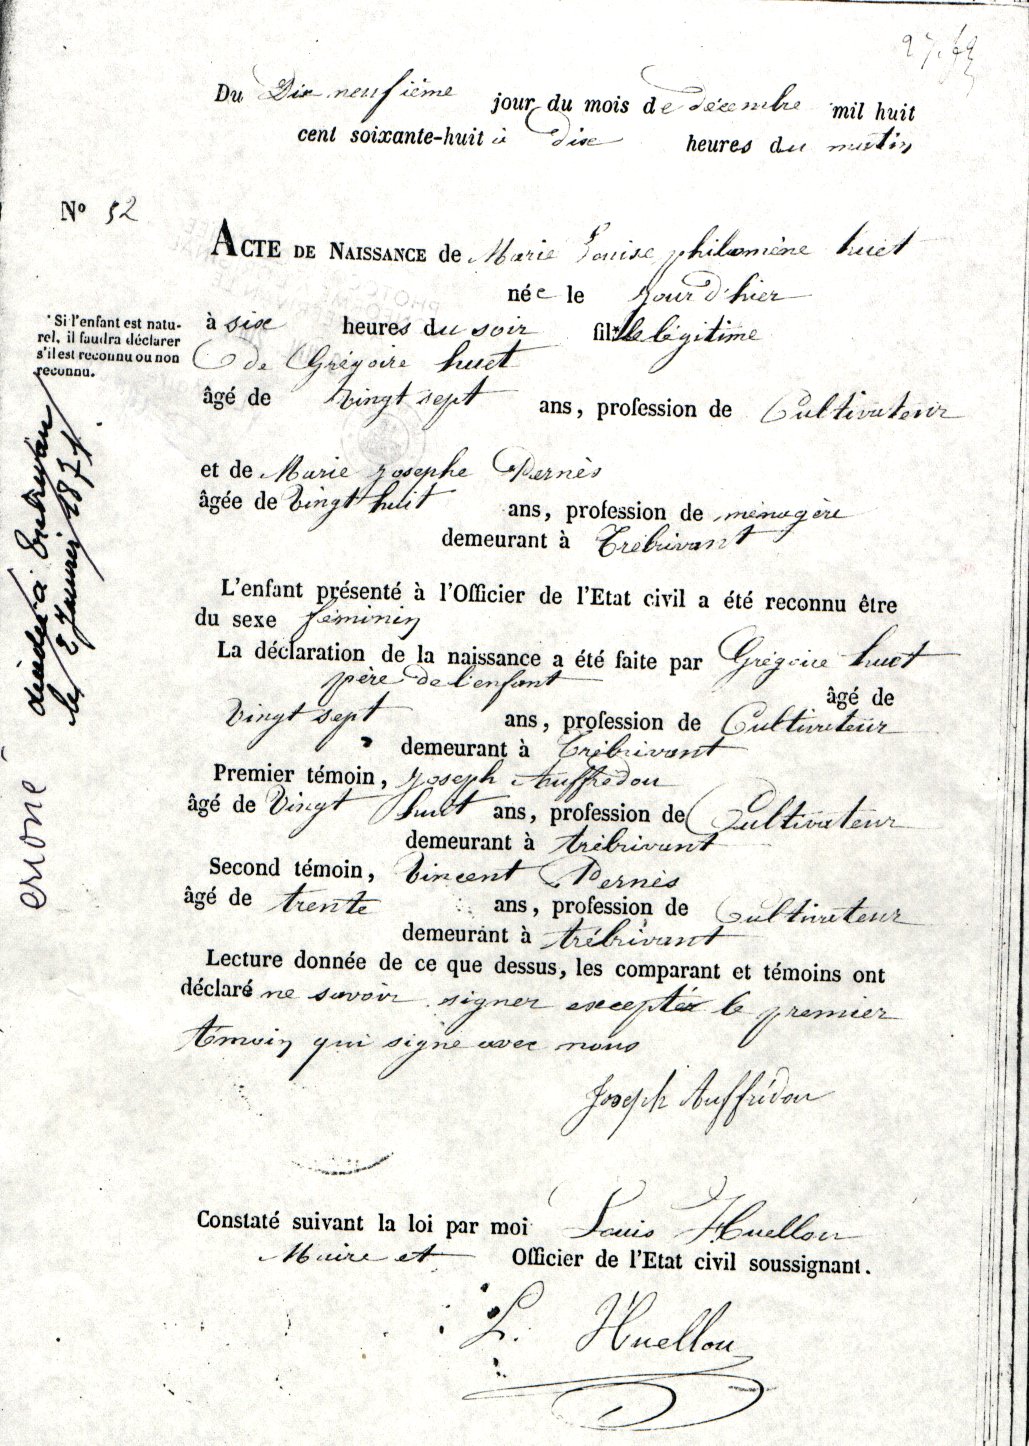 Du Dix neufième jour du mois de décembre mil huit
cent soixante-huit à dix heures du matin
N° 52
ACTE DE NAISSANCE de Marie Louise philomène huet
née le jour d'hier
à six heures du soir fille légitime
de Grégoire huet
âgé de Vingt sept ans, profession de Cultivateur
et de Marie Josephe Pernès
âgée de Vingt huit ans, profession de ménagère
demeurant à Trébrivant
L'enfant présenté à l'Officier de l'Etat civil a été reconnu être
du sexe féminin
La déclaration de la naissance a été faite par Grégoire huet
père de l'enfant âgé de
Vingt sept ans, profession de Cultivateur
demeurant à Trébrivant
Premier témoin, Joseph Auffredou
âgé de Vingt huit ans, profession de Cultivateur
demeurant à trébrivant
Second témoin, Vincent Pernès
âgé de trente ans, profession de Cultivateur
demeurant à trébrivant
Lecture donnée de ce que dessus, les comparant et témoins ont
déclaré ne savoir signer excepter le premier
témoin qui signe avec nous
Joseph Auffrédou
Constaté suivant la loi par moi Louis Huellou
Maire et Officier de l'Etat civil soussignant.
L. Huellou
* Si l'enfant est natu-
rel, il faudra déclarer
s'il est reconnu ou non
reconnu.
décédée à
le 2 Janvier 1871
erroné